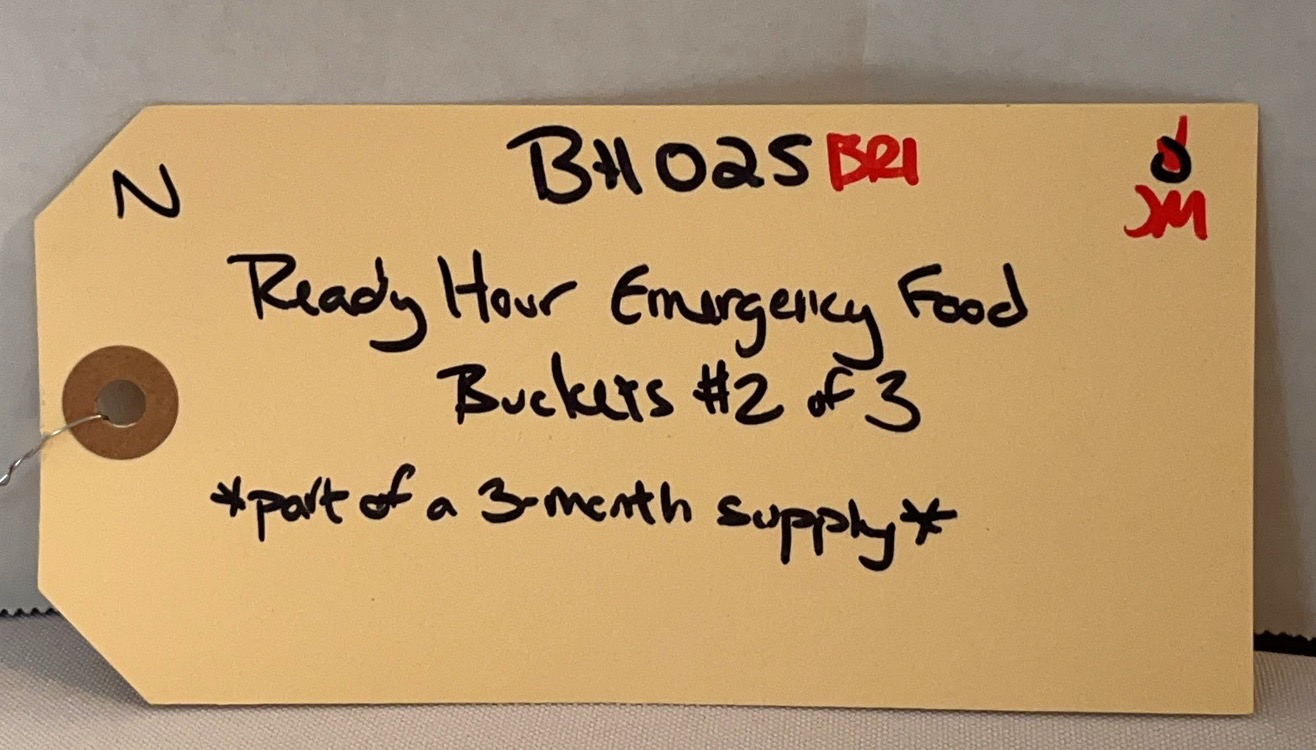 N
BH025 BR1
JM
Ready Hour Emergency Food
Buckets #2 of 3
*part of a 3-month supply*